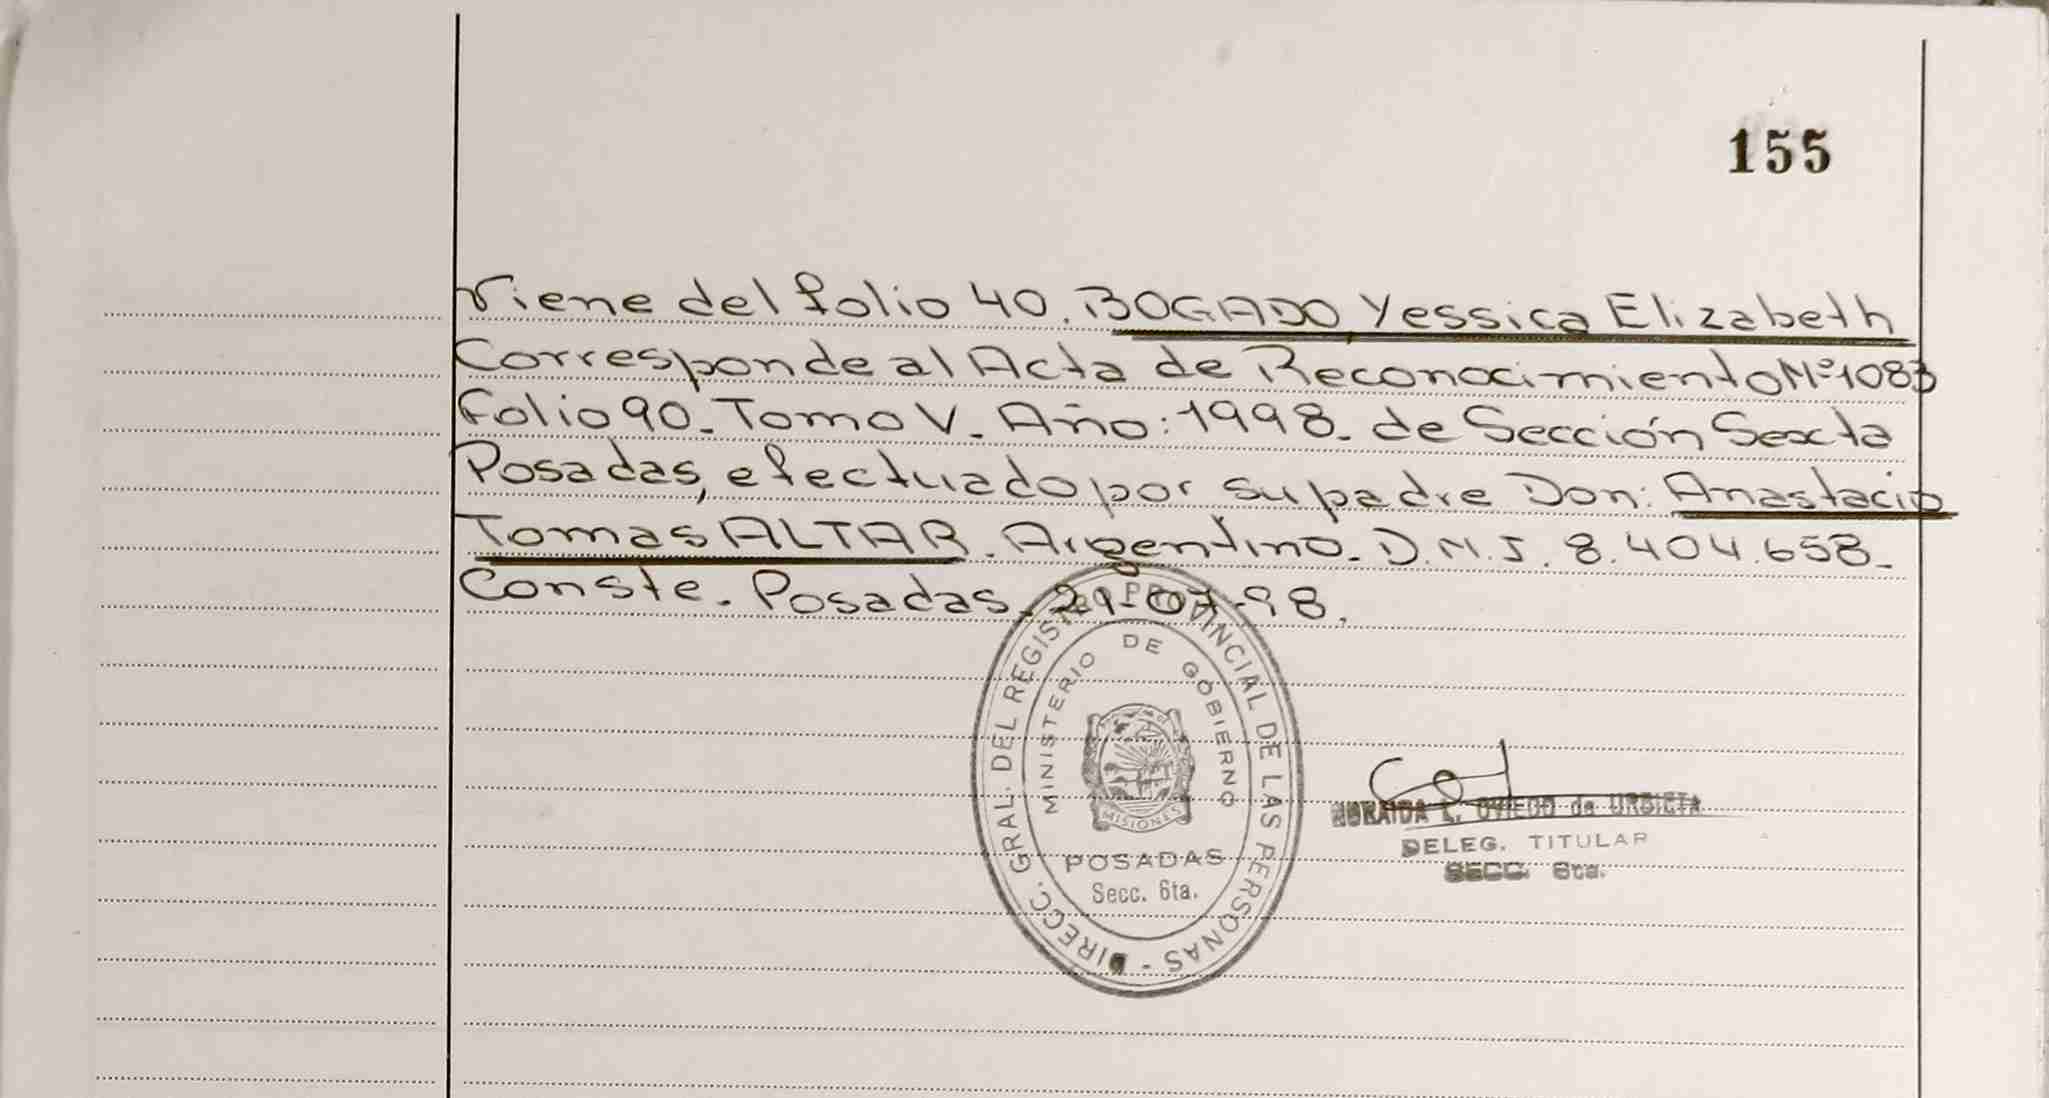 155
Viene del folio 40. BOGADO Yessica Elizabeth
Corresponde al Acta de Reconocimiento Nº 1083
Folio 90. Tomo V. Año: 1998. de Sección Sexta
Posadas, efectuado por su padre Don: Anastacio
Tomas ALTAR. Argentino. D.N.I. 8.404.658.
Conste. Posadas. 29-07-98.
DIRECC. GRAL. DEL REGIST PROVINCIAL DE LAS PERSONAS -
MINISTERIO DE GOBIERNO
MISIONES
POSADAS
Secc. 6ta.
OVIEDO de URBIETA
DELEG. TITULAR
SECC. 6ta.